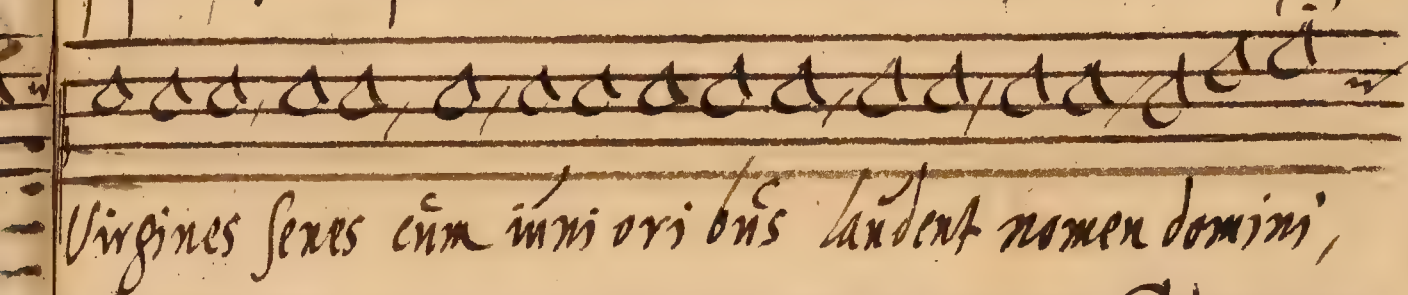 Virgines senes cum iuni ori bus laudent nomen domini,